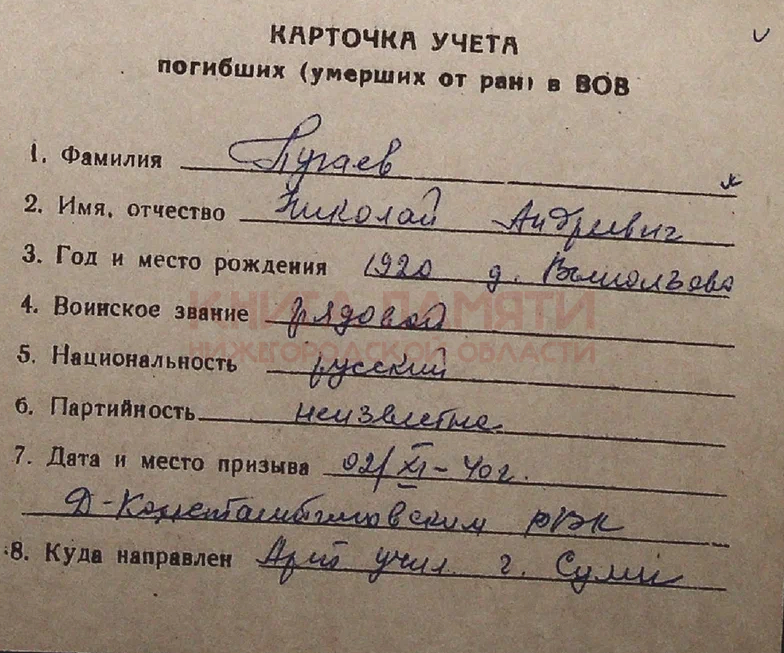 КАРТОЧКА УЧЕТА
погибших (умерших от ран) в ВОВ
1. Фамилия Пугаев
2. Имя, отчество Николай Андреевич
3. Год и место рождения 1920 д.
4. Воинское звание рядовой
5. Национальность русский
6. Партийность неизвестна
7. Дата и место призыва 02/XI-40г.
Д-Константиновским РВК
8. Куда направлен Арт учил. г. Сумы
КНИГА ПАМЯТИ
НИЖЕГОРОДСКОЙ ОБЛАСТИ